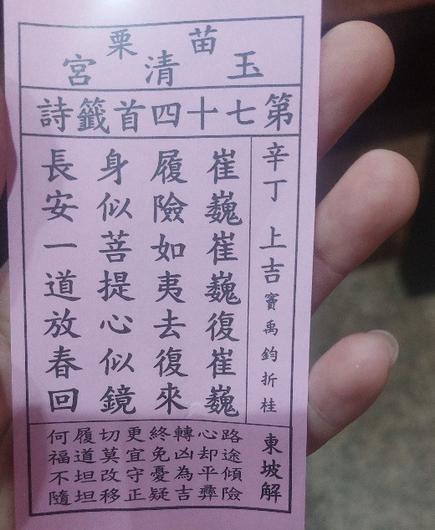 苗栗
玉清宮
第七十四首籤詩
辛丁 上吉 竇禹鈞折桂
崔巍崔巍復崔巍
履險如夷去復來
身似菩提心似鏡
長安一道放春回
東坡解
路途傾險
心却平彝
轉凶為吉
終免憂疑
更宜守正
切莫改移
履道坦坦
何福不隨